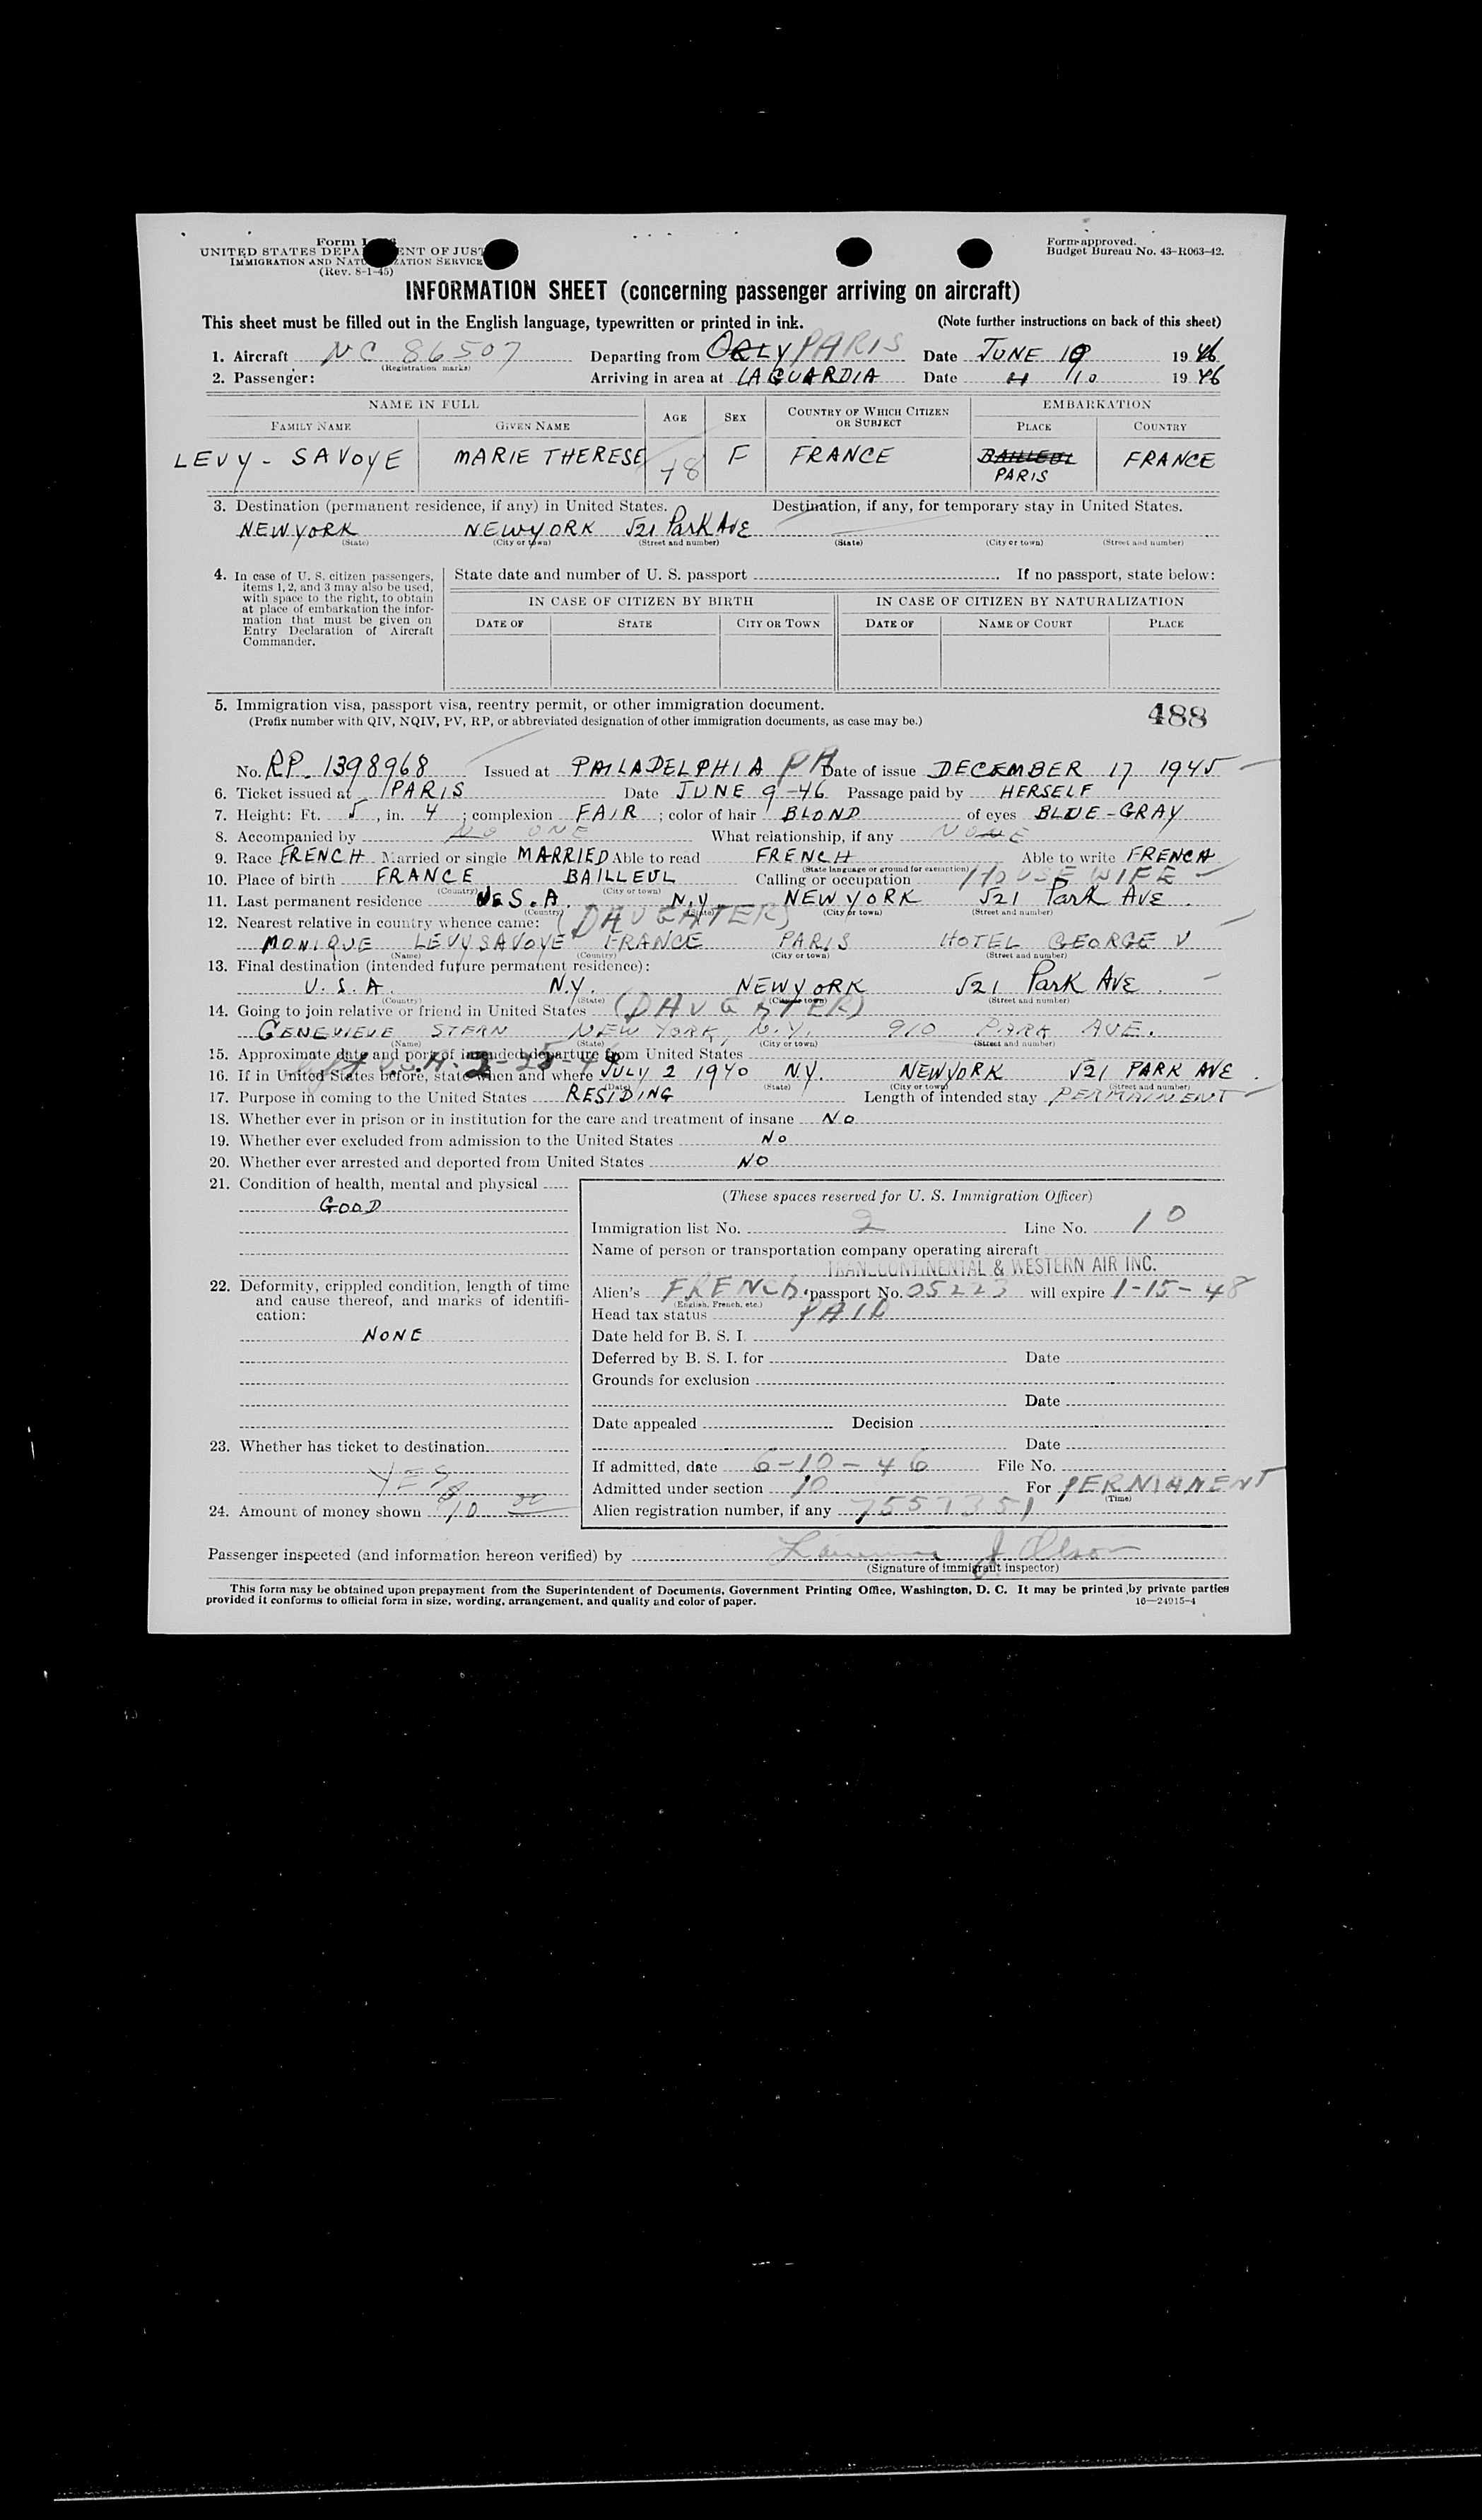 Form I
UNITED STATES DEPA ENT OF JUST
IMMIGRATION AND NATU ZATION SERVICE
(Rev. 8-1-45)
Form approved.
Budget Bureau No. 43-R063-42.
INFORMATION SHEET (concerning passenger arriving on aircraft)
This sheet must be filled out in the English language, typewritten or printed in ink. (Note further instructions on back of this sheet)
1. Aircraft NC 86507 Departing from ORLY PARIS Date JUNE 1946
(Registration marks)
2. Passenger: Arriving in area at LAGUARDIA Date " 10 1946
NAME IN FULL AGE SEX COUNTRY OF WHICH CITIZEN OR SUBJECT EMBARKATION
FAMILY NAME GIVEN NAME PLACE COUNTRY
LEVY - SAVOYE MARIE THERESE 48 F FRANCE BAILLEUL FRANCE
PARIS
3. Destination (permanent residence, if any) in United States. Destination, if any, for temporary stay in United States.
NEW YORK NEW YORK 521 Park AvE
(State) (City or town) (Street and number) (State) (City or town) (Street and number)
4. In case of U. S. citizen passengers, items 1, 2, and 3 may also be used, with space to the right, to obtain at place of embarkation the information that must be given on Entry Declaration of Aircraft Commander.
State date and number of U. S. passport If no passport, state below:
IN CASE OF CITIZEN BY BIRTH IN CASE OF CITIZEN BY NATURALIZATION
DATE OF STATE CITY OR TOWN DATE OF NAME OF COURT PLACE
5. Immigration visa, passport visa, reentry permit, or other immigration document.
(Prefix number with QIV, NQIV, PV, RP, or abbreviated designation of other immigration documents, as case may be.) 488
No. RP. 1398968 Issued at PHILADELPHIA PA Date of issue DECEMBER 17 1945
6. Ticket issued at PARIS Date JUNE 9-46 Passage paid by HERSELF
7. Height: Ft. 5, in. 4; complexion FAIR; color of hair BLOND of eyes BLUE-GRAY
8. Accompanied by NO ONE What relationship, if any NONE
9. Race FRENCH Married or single MARRIED Able to read FRENCH Able to write FRENCH
(State language or ground for exemption)
10. Place of birth FRANCE BAILLEUL Calling or occupation HOUSEWIFE
(Country) (City or town)
11. Last permanent residence U.S.A. N.Y NEW YORK 521 Park AvE.
(Country) (State) (City or town) (Street and number)
12. Nearest relative in country whence came: (DAUGHTER)
MONIQUE LEVY SAVOYE FRANCE PARIS HOTEL GEORGE V
(Name) (Country) (City or town) (Street and number)
13. Final destination (intended future permanent residence):
U.S.A. N.Y. NEW YORK 521 Park AvE.
(Country) (State) (City or town) (Street and number)
14. Going to join relative or friend in United States (DAUGHTER)
GENEVIEVE STERN NEW YORK, N.Y. 910 PARK AVE.
(Name) (State) (City or town) (Street and number)
15. Approximate date and port of intended departure from United States
16. If in United States before, state when and where JULY 2 1940 N.Y. NEW YORK 521 PARK AVE.
(Date) (State) (City or town) (Street and number)
17. Purpose in coming to the United States RESIDING Length of intended stay PERMAINENT
18. Whether ever in prison or in institution for the care and treatment of insane NO
19. Whether ever excluded from admission to the United States NO
20. Whether ever arrested and deported from United States NO
21. Condition of health, mental and physical
GOOD
22. Deformity, crippled condition, length of time and cause thereof, and marks of identification:
NONE
23. Whether has ticket to destination
YES
24. Amount of money shown $10 00
(These spaces reserved for U. S. Immigration Officer)
Immigration list No. 2 Line No. 10
Name of person or transportation company operating aircraft
TRANSCONTINENTAL & WESTERN AIR INC.
Alien's FRENCh passport No. 05223 will expire 1-15-48
(English, French, etc.)
Head tax status PAID
Date held for B. S. I.
Deferred by B. S. I. for Date
Grounds for exclusion
Date
Date appealed Decision
Date
If admitted, date 6-10-46 File No.
Admitted under section 10 For PERMANENT
(Time)
Alien registration number, if any 7557351
Passenger inspected (and information hereon verified) by J Olson
(Signature of immigrant inspector)
This form may be obtained upon prepayment from the Superintendent of Documents, Government Printing Office, Washington, D. C. It may be printed by private parties
provided it conforms to official form in size, wording, arrangement, and quality and color of paper. 16—24915-4